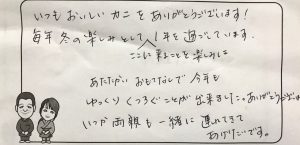 いつもおいしいカニをありがとうございます!
毎年冬の楽しみとして1年を過ごしています。
ここに来ることを楽しみに
あたたかいおもてなしで今年も
ゆっくりくつろぐことが出来ました。ありがとうございます
いつか両親も一緒に連れてきて
あげたいです。